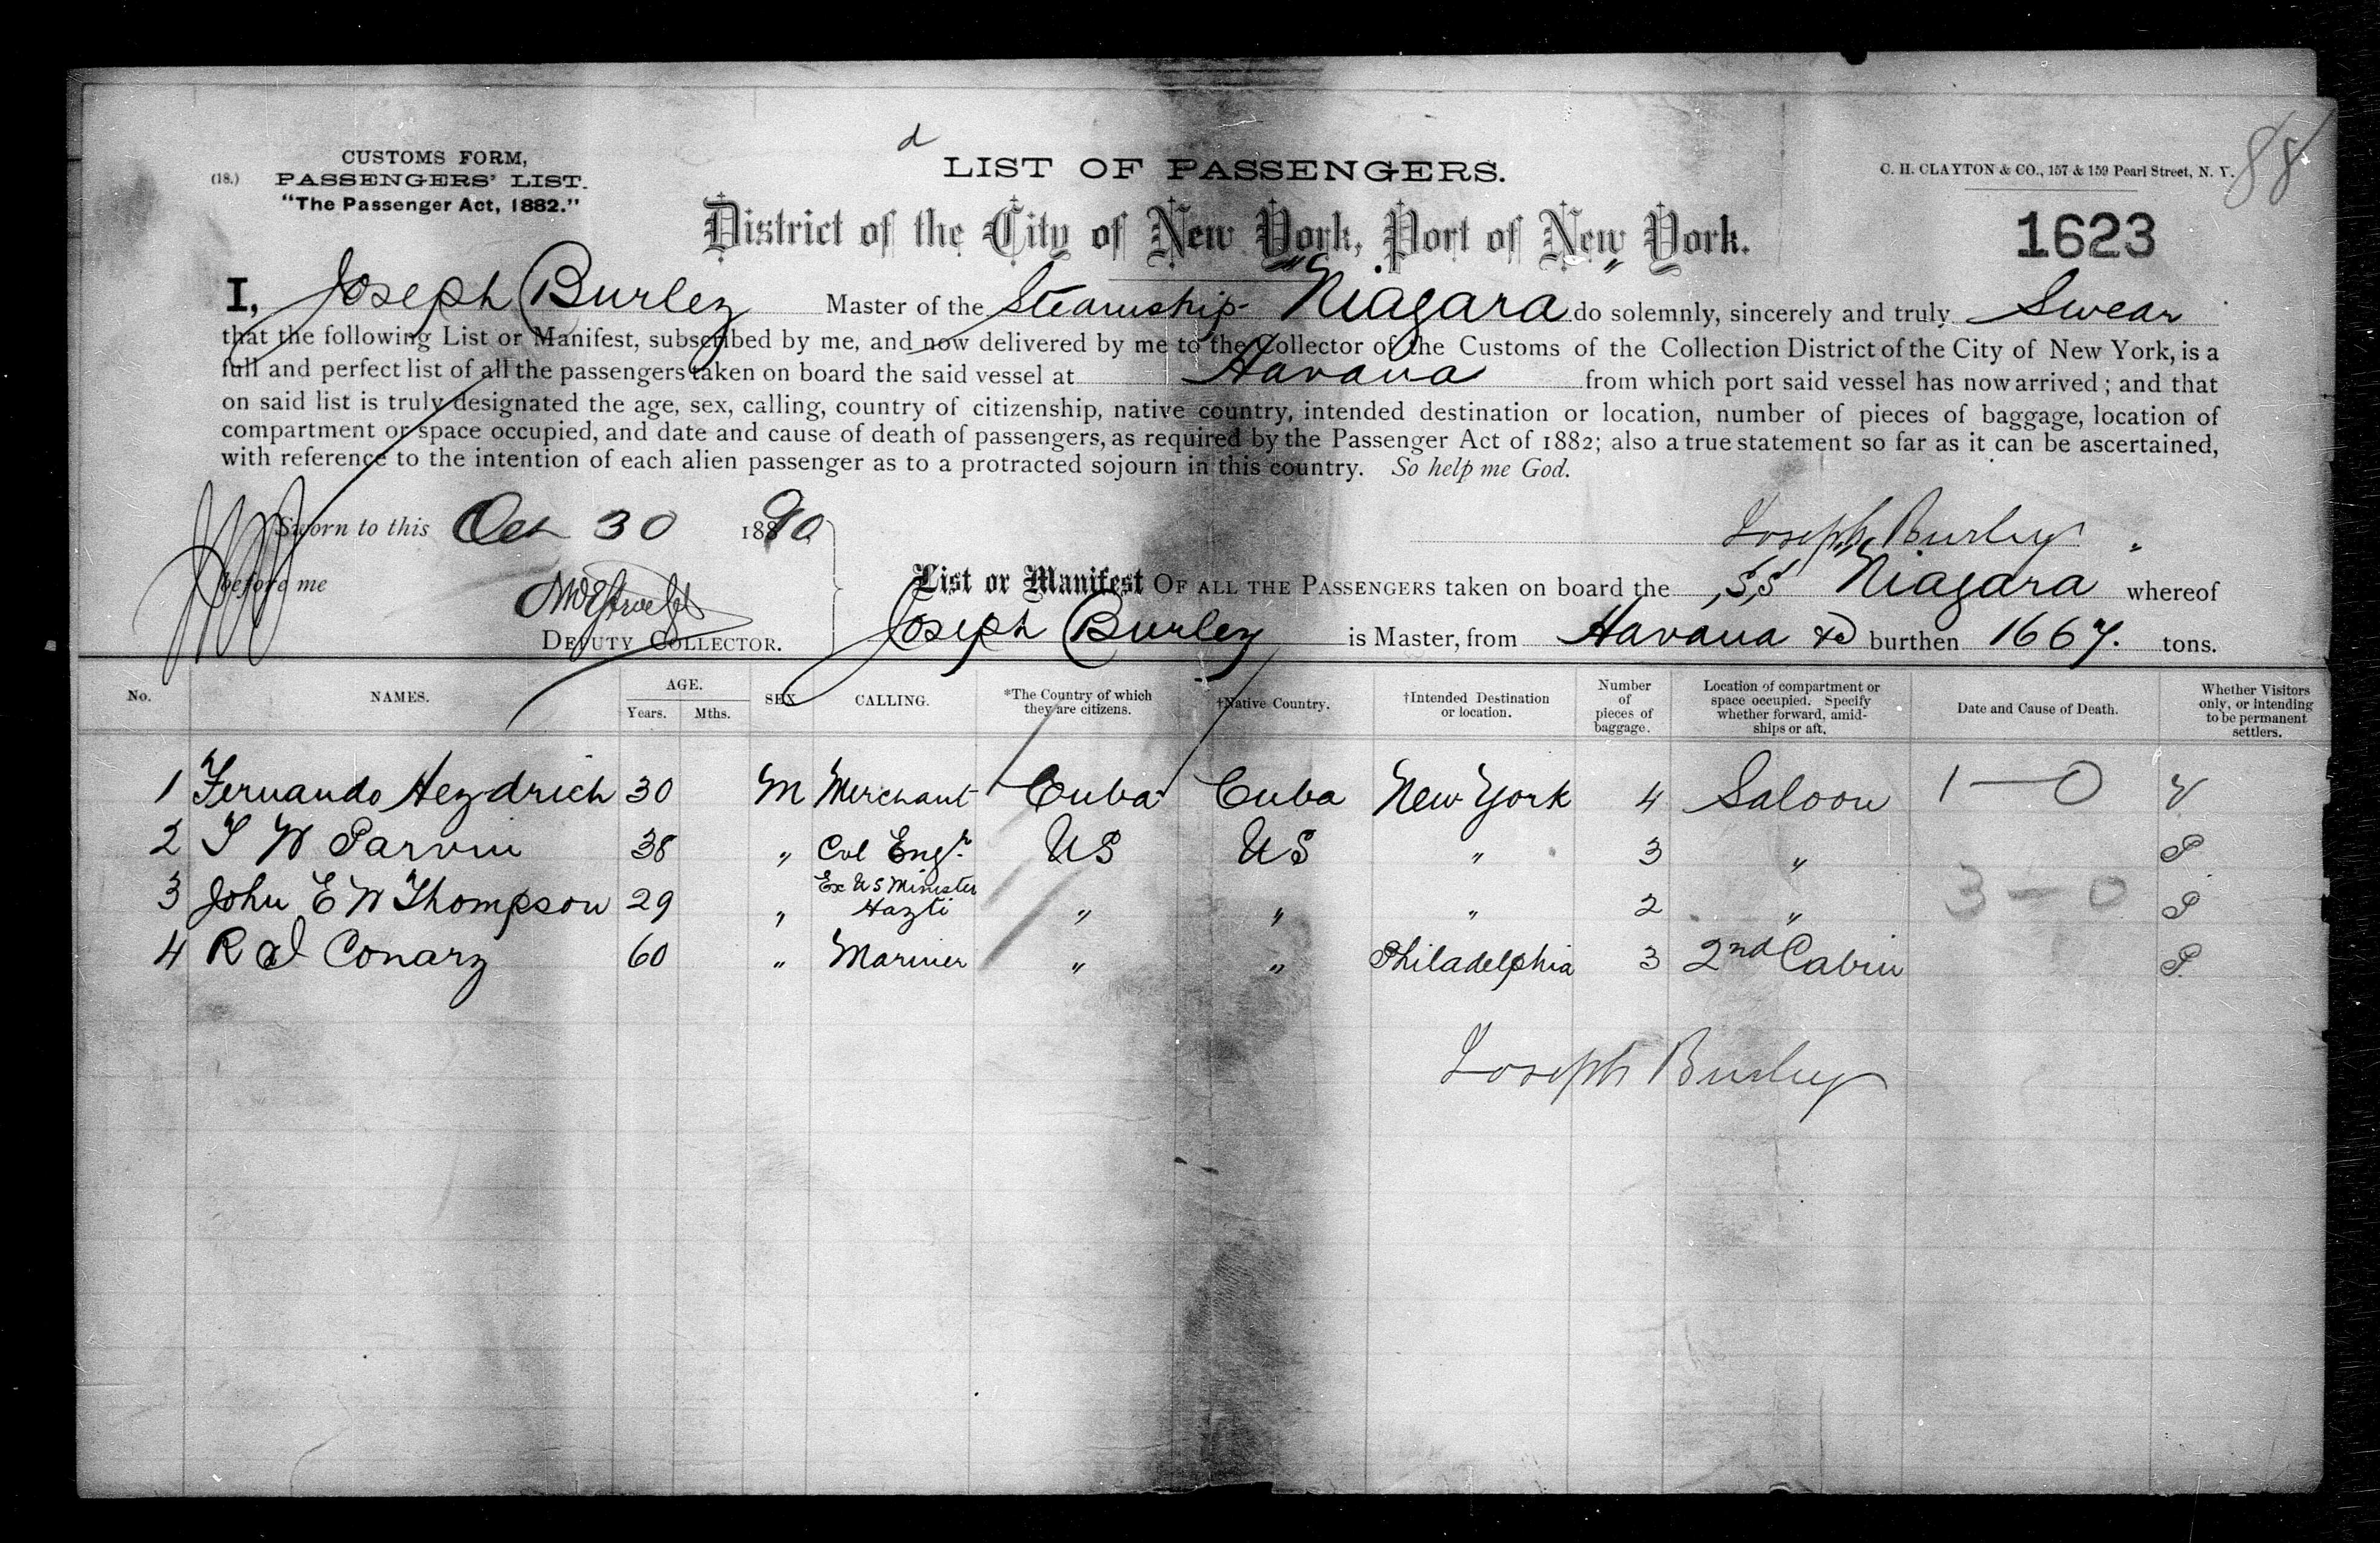 d
88
CUSTOMS FORM,
(18.) PASSENGERS' LIST.
"The Passenger Act, 1882."
LIST OF PASSENGERS.
C. H. CLAYTON & CO., 157 & 159 Pearl Street, N. Y.
District of the City of New York, Port of New York.
1623
I, Joseph Burley Master of the Steamship "Niagara" do solemnly, sincerely and truly Swear
that the following List or Manifest, subscribed by me, and now delivered by me to the Collector of the Customs of the Collection District of the City of New York, is a
full and perfect list of all the passengers taken on board the said vessel at Havana from which port said vessel has now arrived; and that
on said list is truly designated the age, sex, calling, country of citizenship, native country, intended destination or location, number of pieces of baggage, location of
compartment or space occupied, and date and cause of death of passengers, as required by the Passenger Act of 1882; also a true statement so far as it can be ascertained,
with reference to the intention of each alien passenger as to a protracted sojourn in this country. So help me God.
Sworn to this Oct 30 1890
Joseph Burley
before me
DEPUTY COLLECTOR.
List or Manifest OF ALL THE PASSENGERS taken on board the SS "Niagara" whereof
Joseph Burley is Master, from Havana burthen 1667. tons.
No. NAMES. AGE. Years. Mths. SEX CALLING. *The Country of which they are citizens. †Native Country. †Intended Destination or location. Number of pieces of baggage. Location of compartment or space occupied. Specify whether forward, amid-ships or aft. Date and Cause of Death. Whether Visitors only, or intending to be permanent settlers.
1 Fernando Heydrich 30 M Merchant Cuba Cuba New York 4 Saloon 1—0 V
2 T W Parvin 38 " Cvl Engr. US US " 3 " P
3 John E W Thompson 29 " Ex US Minister Hayti " " " 2 " 3—0 P
4 R Conary 60 " Mariner " " Philadelphia 3 2nd Cabin P.
Joseph Burley